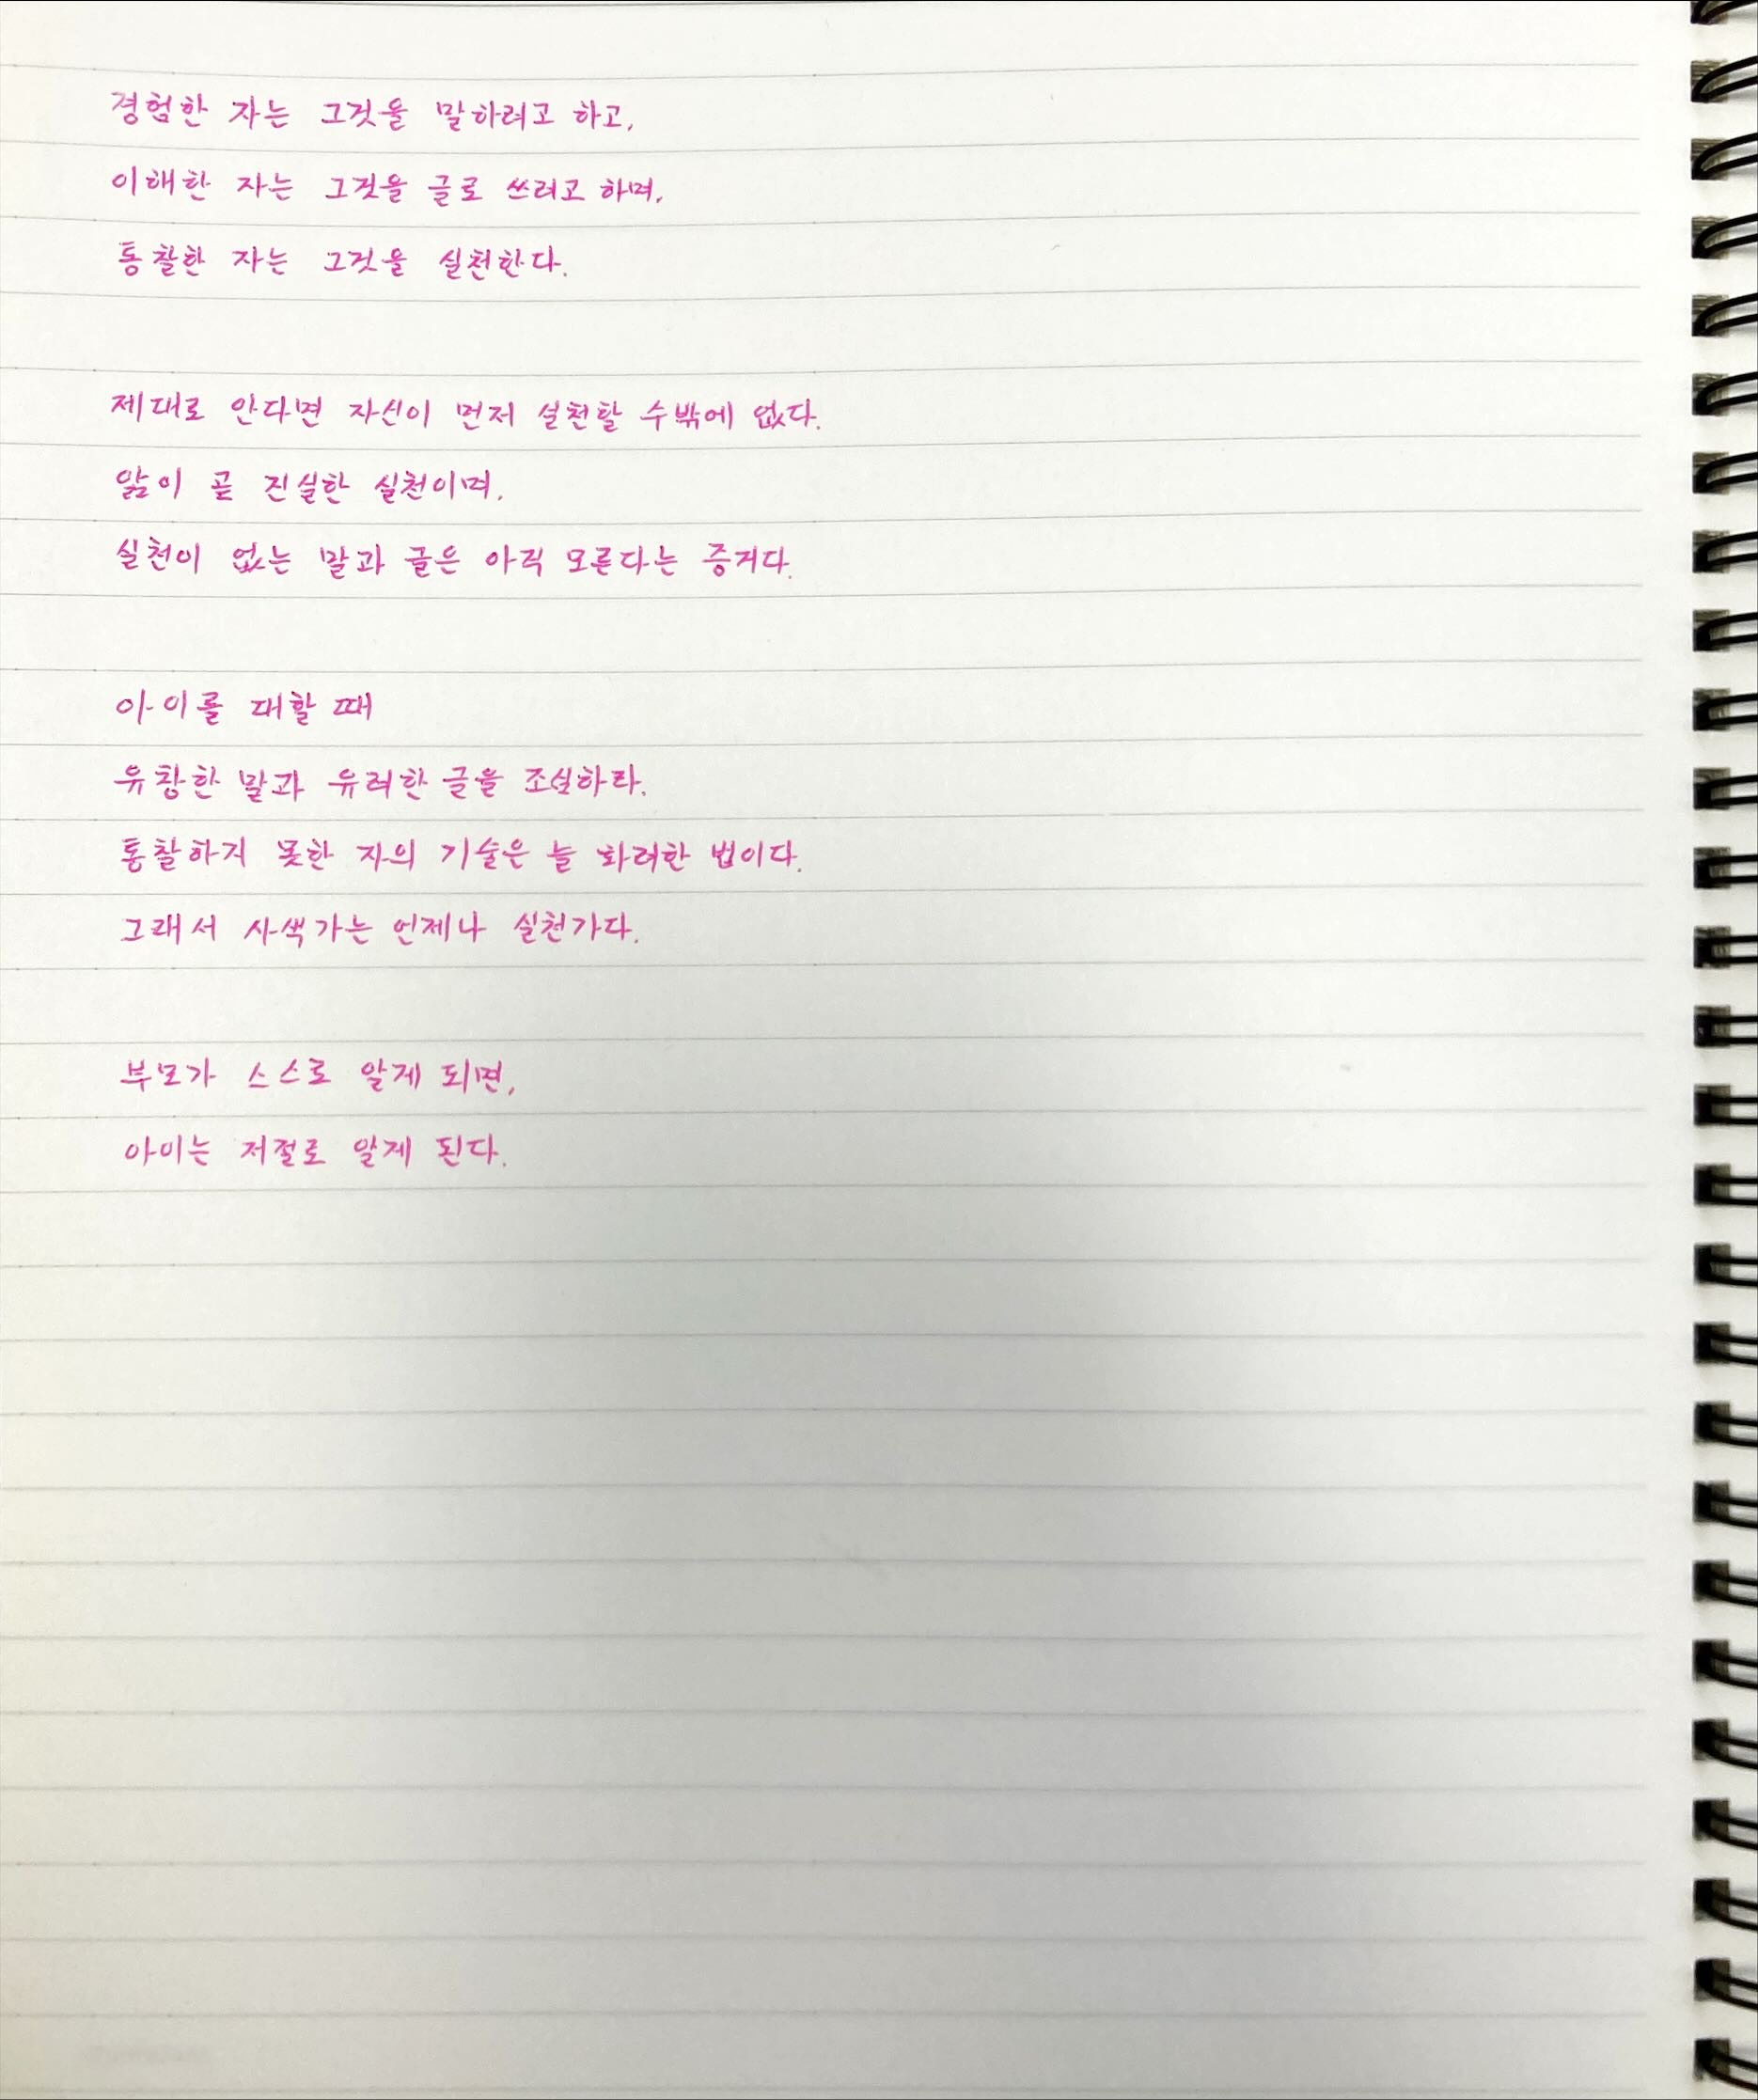 경험한 자는 그것을 말하려고 하고,
이해한 자는 그것을 글로 쓰려고 하며,
통찰한 자는 그것을 실천한다.
제대로 안다면 자신이 먼저 실천할 수밖에 없다.
앎이 곧 진실한 실천이며,
실천이 없는 말과 글은 아직 모른다는 증거다.
아이를 대할 때
유창한 말과 유려한 글을 조심하라.
통찰하지 못한 자의 기술은 늘 화려한 법이다.
그래서 사색가는 언제나 실천가다.
부모가 스스로 알게 되면,
아이는 저절로 알게 된다.